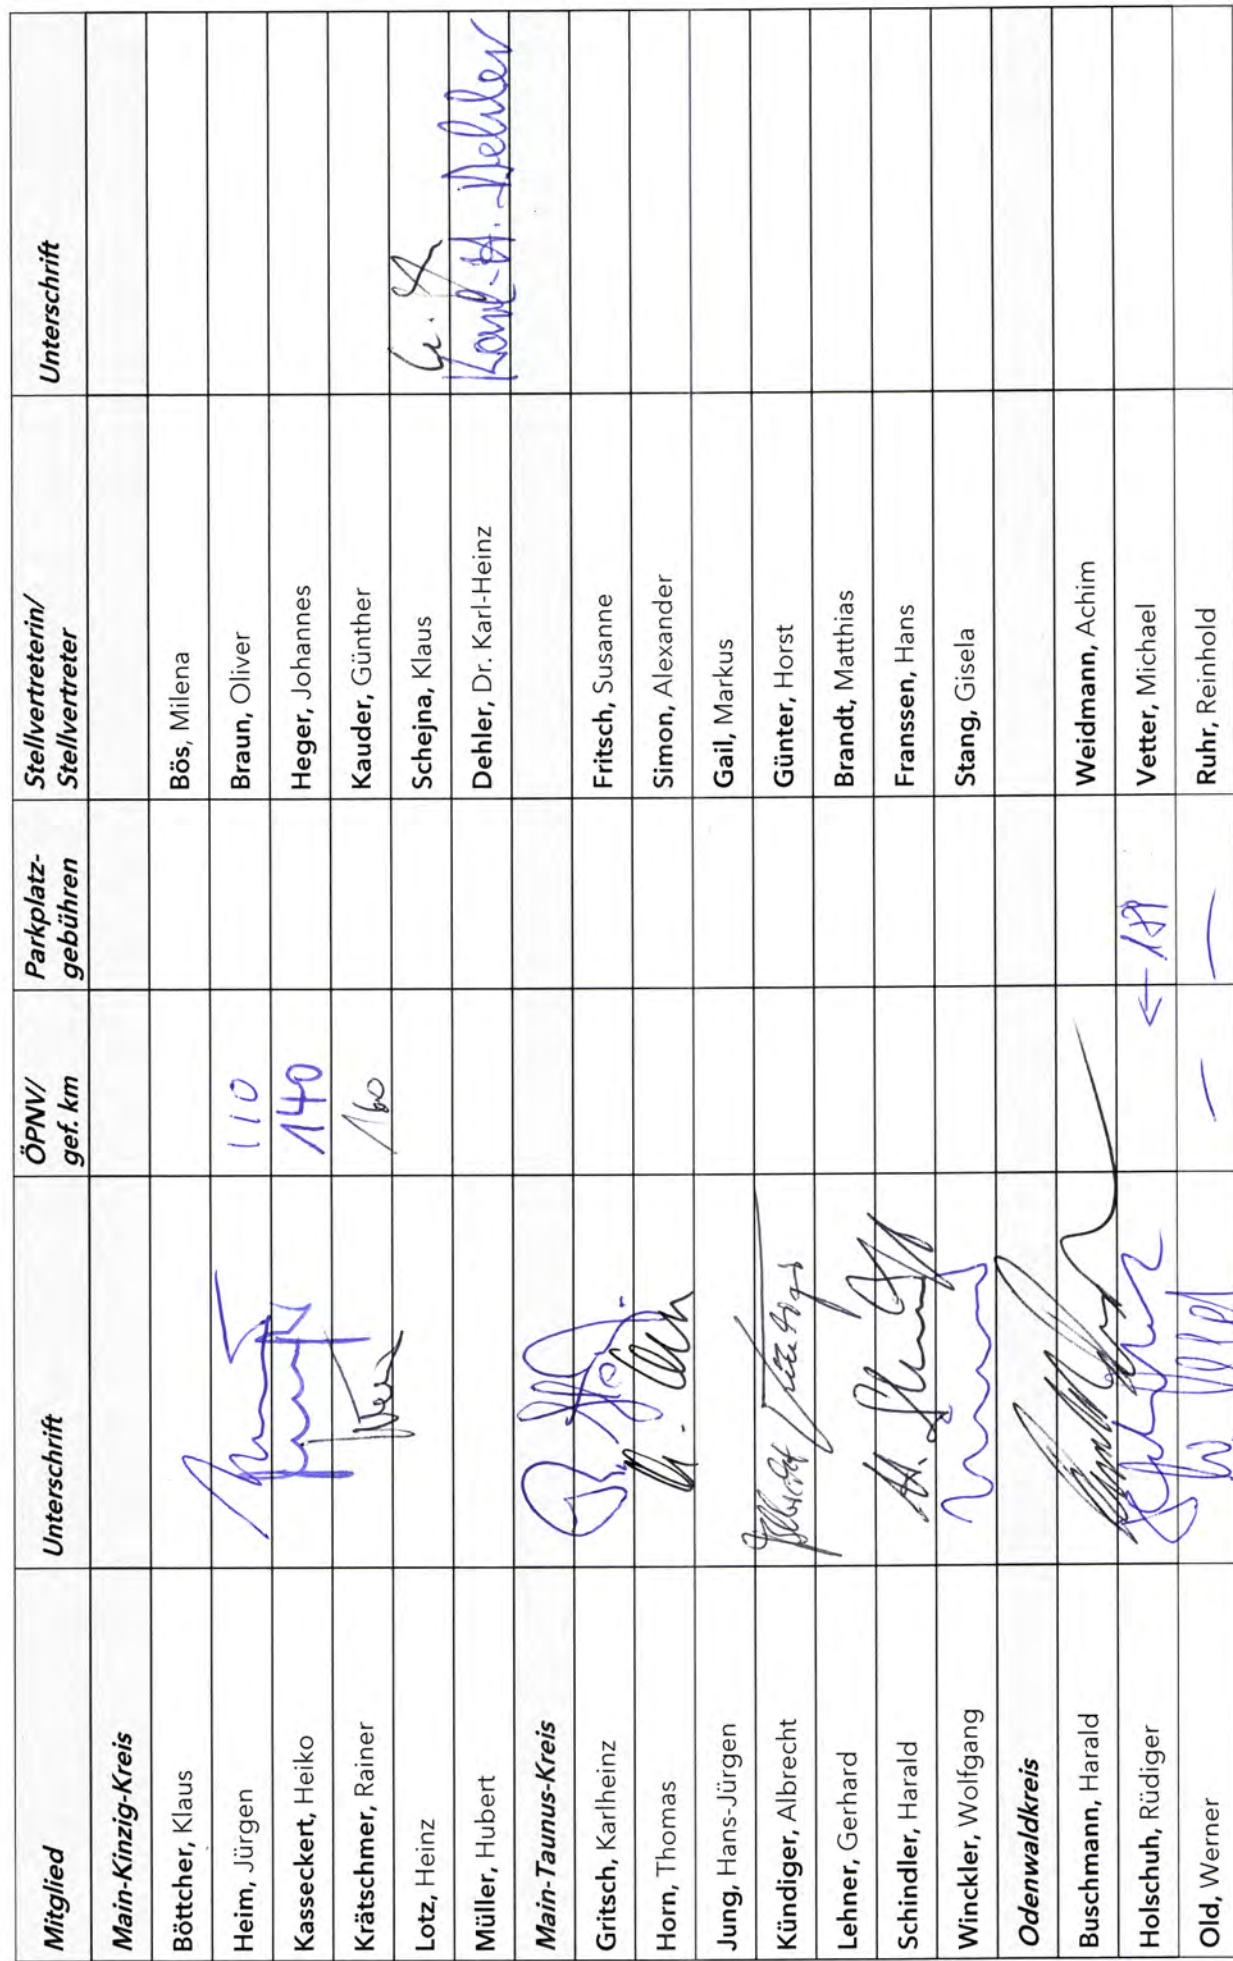 Mitglied Unterschrift ÖPNV/ gef. km Parkplatz-gebühren Stellvertreterin/ Stellvertreter Unterschrift
Main-Kinzig-Kreis
Böttcher, Klaus Bös, Milena
Heim, Jürgen 110 Braun, Oliver
Kasseckert, Heiko 140 Heger, Johannes
Krätschmer, Rainer 160 Kauder, Günther
Lotz, Heinz Schejna, Klaus
Müller, Hubert Dehler, Dr. Karl-Heinz Karl-H. Dehler
Main-Taunus-Kreis
Gritsch, Karlheinz Fritsch, Susanne
Horn, Thomas Simon, Alexander
Jung, Hans-Jürgen Gail, Markus
Kündiger, Albrecht Albrecht Kündiger Günter, Horst
Lehner, Gerhard Brandt, Matthias
Schindler, Harald Franssen, Hans
Winckler, Wolfgang Stang, Gisela
Odenwaldkreis
Buschmann, Harald Weidmann, Achim
Holschuh, Rüdiger ← Vetter, Michael
Old, Werner — — Ruhr, Reinhold